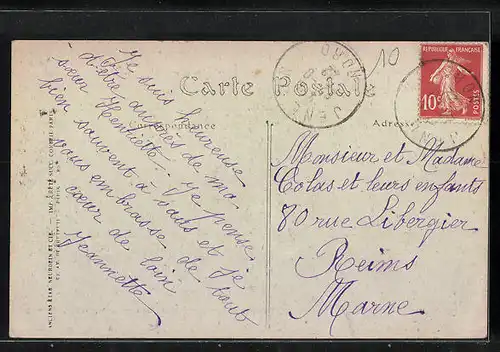 10
RÉPUBLIQUE FRANÇAISE
10c
POSTES
Carte Postale
Correspondance
Adresse
Je suis heureuse
d'être auprès de ma
sœur Henriette. Je pense
bien souvent à vous et je
vous embrasse de tout
cœur de loin
Jeannette
Monsieur et Madame
Colas et leurs enfants
80 rue Libergier
Reims
Marne